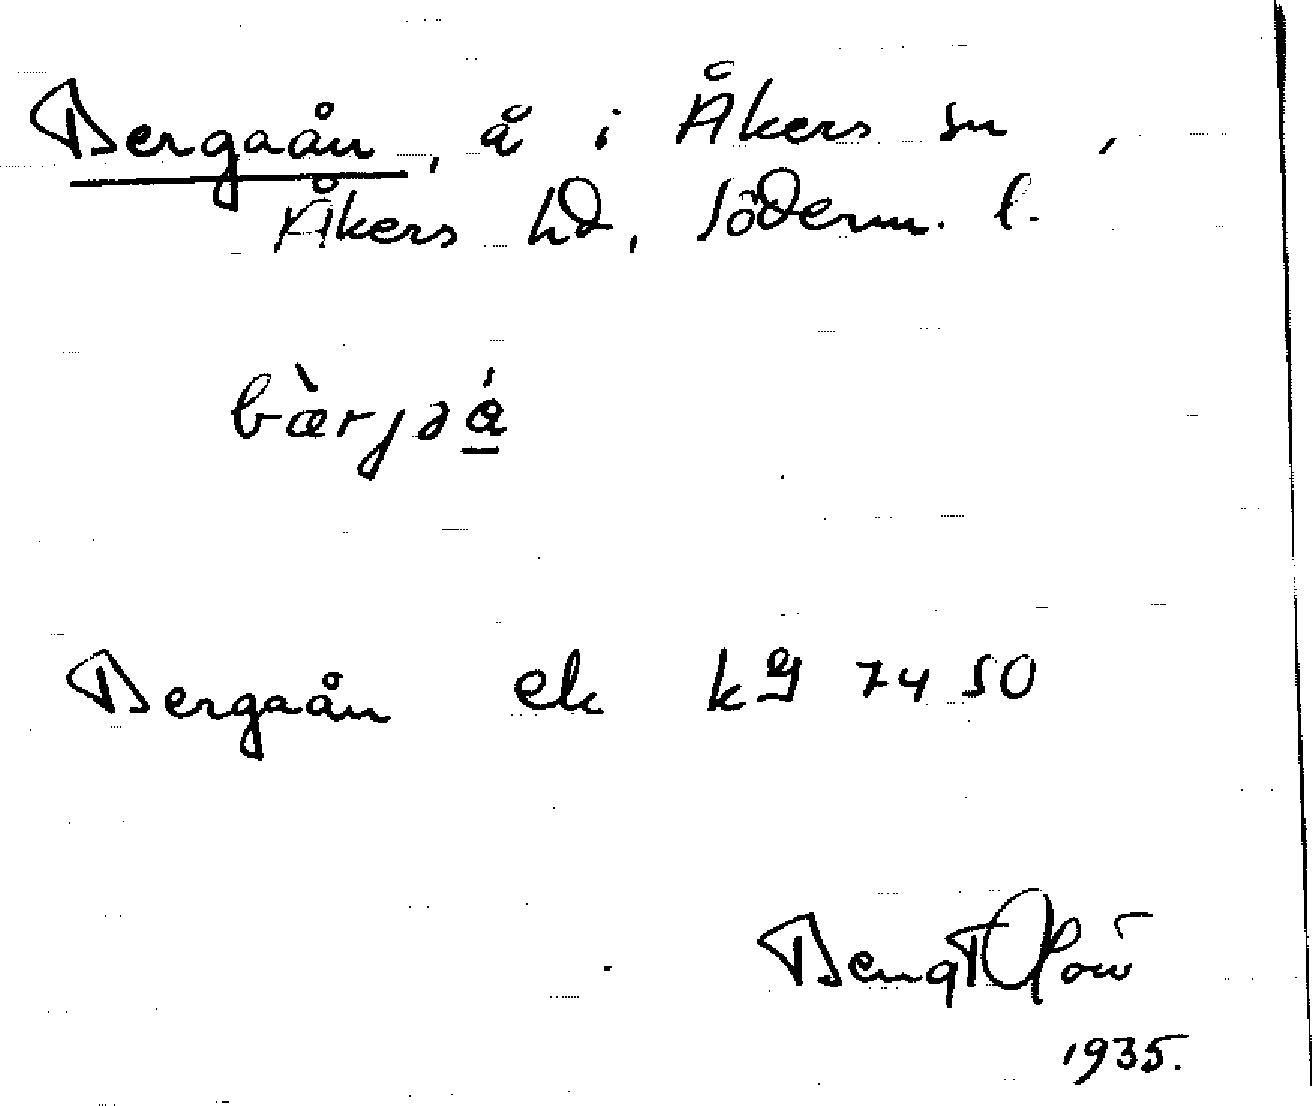 Bergaån, å i Åkers sn,
Åkers hd, Söderm. l.
bæ̀rjəá̱
Bergaån ek kg 7450
1935.